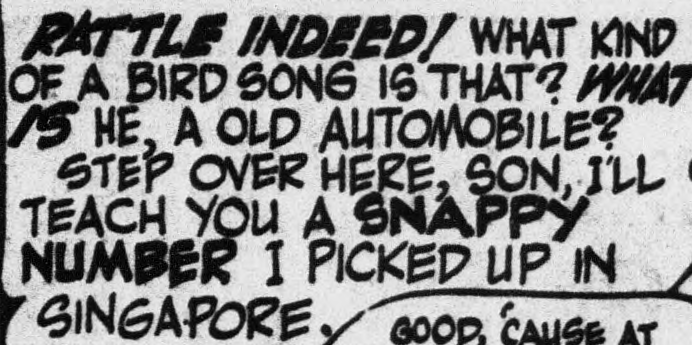 RATTLE INDEED! WHAT KIND
OF A BIRD SONG IS THAT? WHAT
IS HE, A OLD AUTOMOBILE?
STEP OVER HERE, SON, I'LL
TEACH YOU A SNAPPY
NUMBER I PICKED UP IN
SINGAPORE.
GOOD, 'CAUSE AT